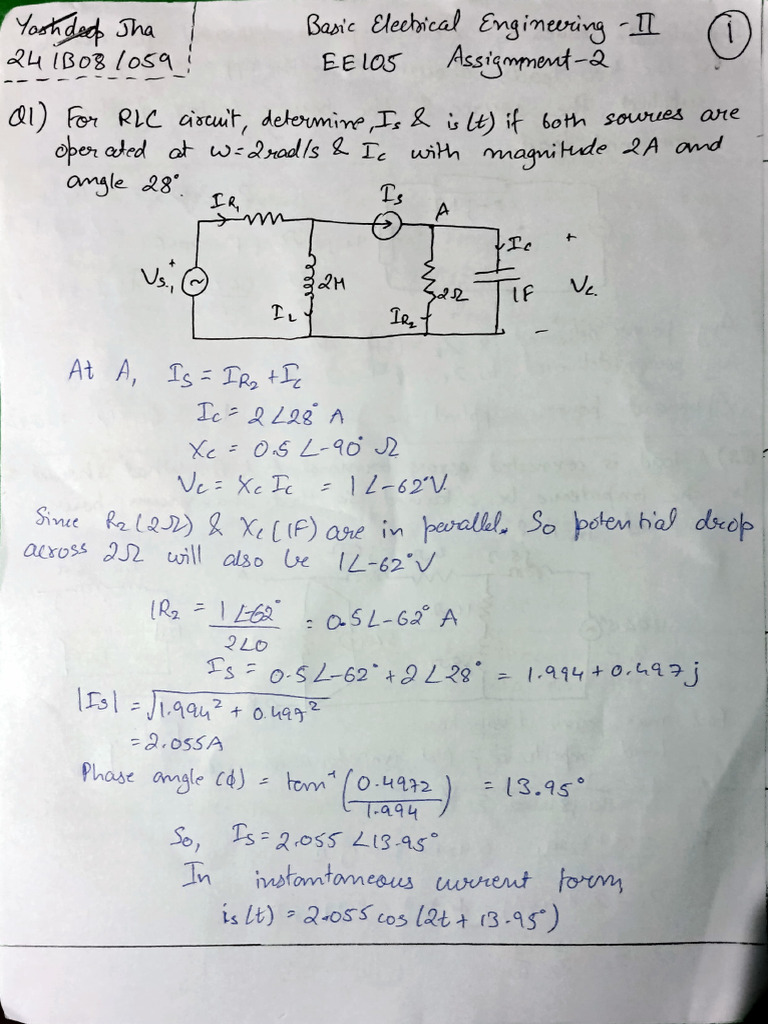 Yashdeep Jha
241B08/059
Basic Electrical Engineering -II
EE105 Assignment-2
i
Q1) For RLC circuit, determine, Is & is(t) if both sources are
operated at w=2rad/s & Ic with magnitude 2A and
angle 28°.
IR₁
Is
A
Vs₁ +
2H
IL
2Ω
IR₂
Ic
1F
+
Vc.
-
At A, Is = IR₂ + Ic
Ic = 2∠28° A
Xc = 0.5∠-90° Ω
Vc = Xc Ic = 1∠-62°V.
Since R₂(2Ω) & Xc(1F) are in parallel. So potential drop
across 2Ω will also be 1∠-62°V
IR₂ = 1∠-62° / 2∠0 = 0.5∠-62° A
Is = 0.5∠-62° + 2∠28° = 1.994 + 0.497j
|Is| = √1.994² + 0.497²
= 2.055A
Phase angle (ϕ) = tan⁻¹(0.4972/1.994) = 13.95°
So, Is = 2.055∠13.95°
In instantaneous current form,
is(t) = 2.055 cos(2t + 13.95°)